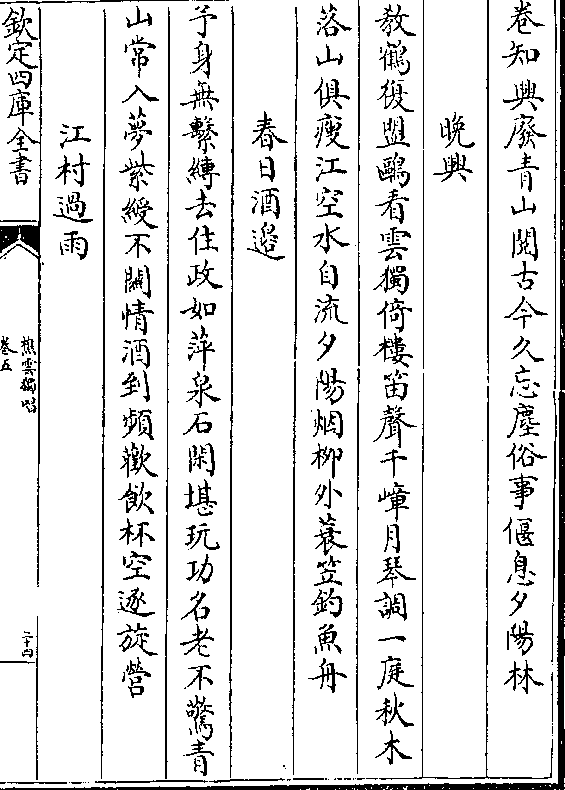 卷知興廢青山閱古今久忘塵俗事偃息夕陽林
晚興
教鶴復盟鷗看雲獨倚樓笛聲千嶂月琴調一庭秋木
落山俱瘦江空水自流夕陽烟柳外蓑笠釣魚舟
春日酒邊
予身無繫縛去住政如萍泉石閑堪玩功名老不驚青
山常入夢紫綬不關情酒到頻歡飲杯空逐旋營
江村過雨
欽定四庫全書
樵雲獨唱
卷五
二十四